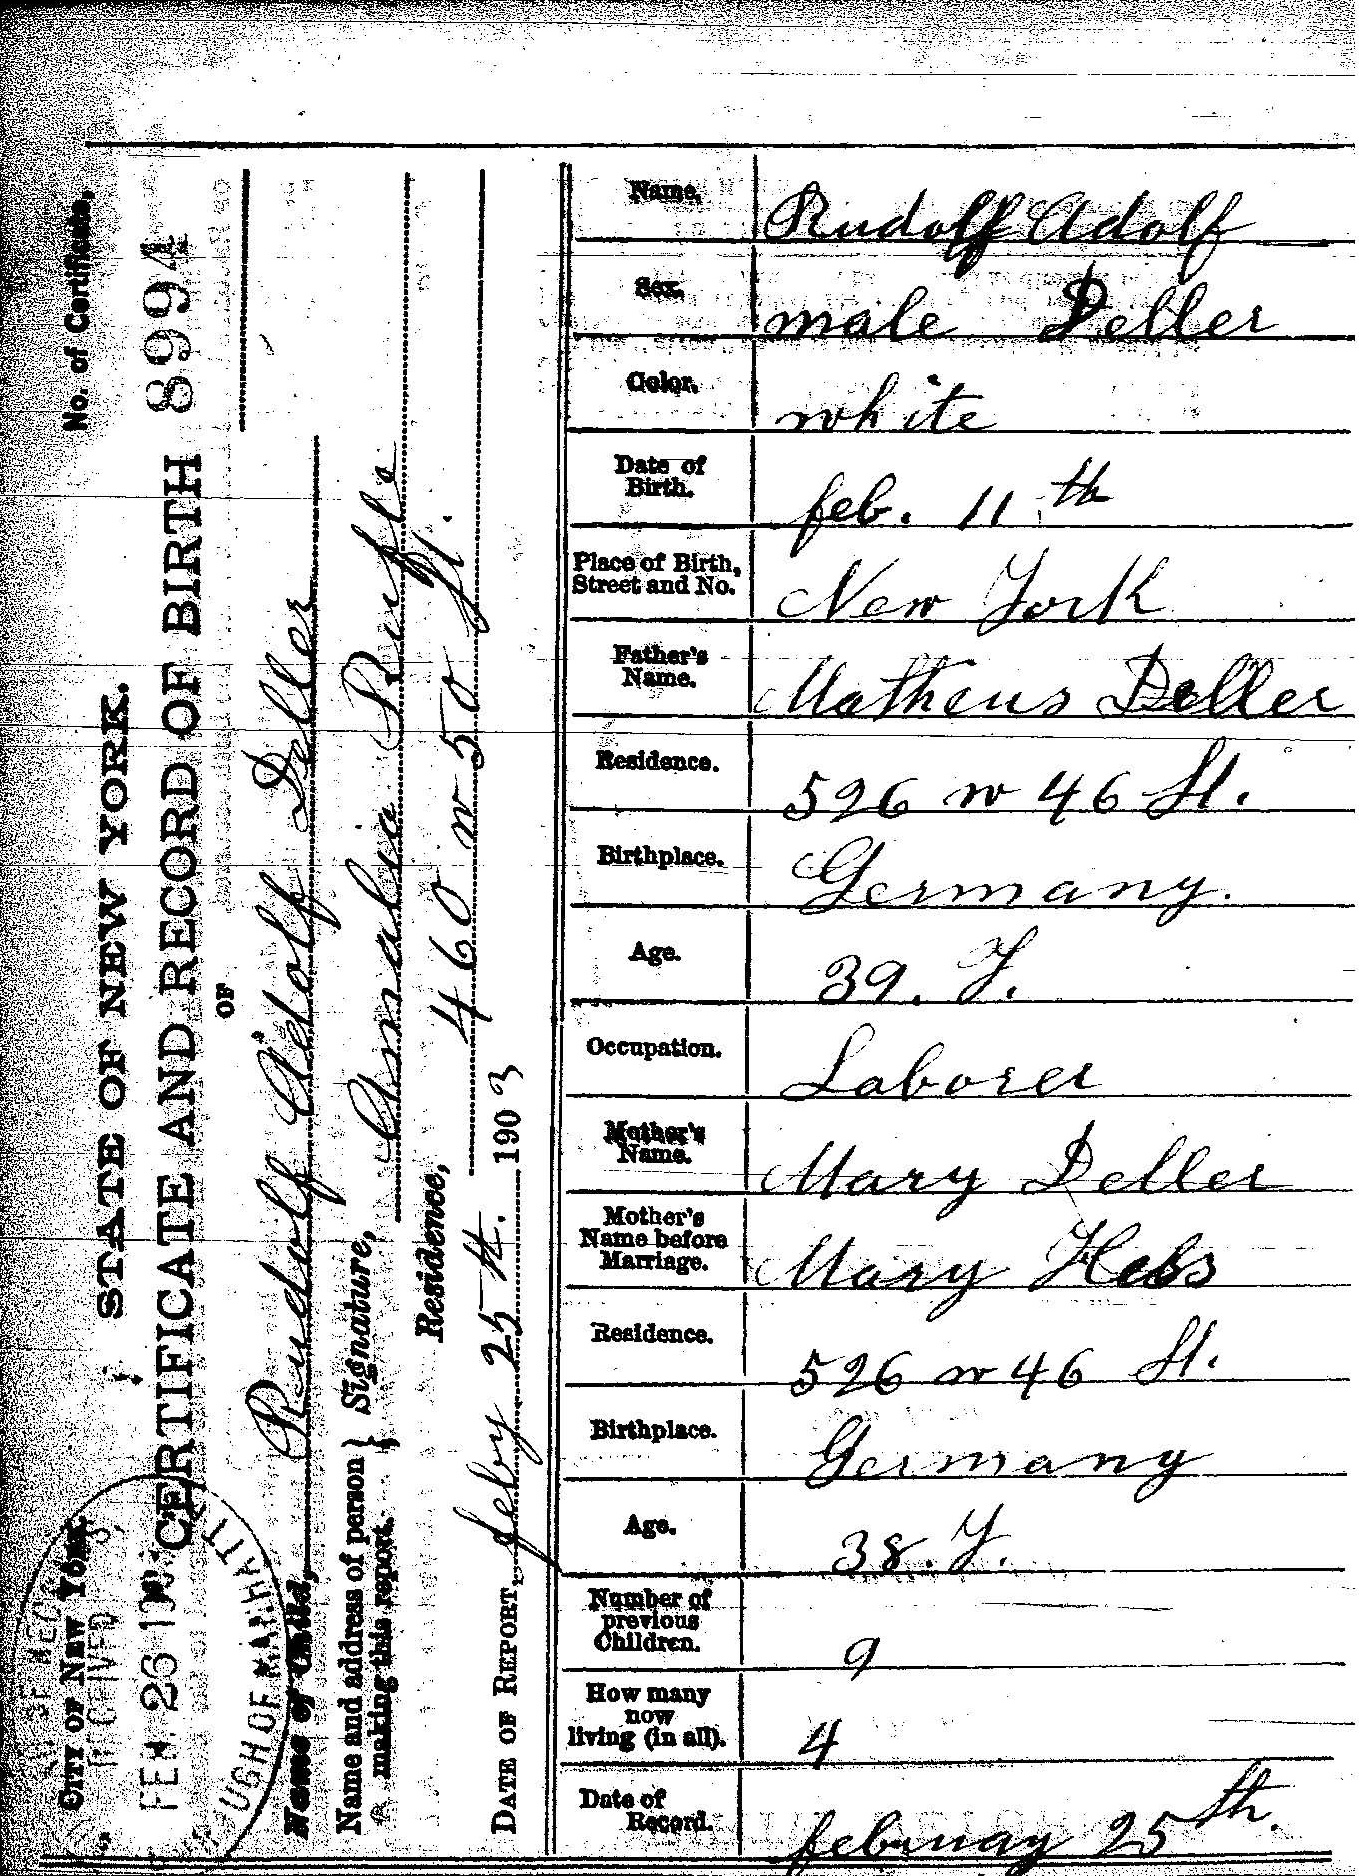 CITY OF NEW YORK.
STATE OF NEW YORK.
No. of Certificate,
CERTIFICATE AND RECORD OF BIRTH
8994
OF
Name of Child, Rudolf Adolf Deller
Name and address of person making this report. } Signature, Amalia Ruffle
Residence, 460 w 50 St.
DATE OF REPORT, feby 25th. 1903
RECEIVED
FEB 26 190
UGH OF MANHATT
Name. Rudolf Adolf
Sex. male Deller
Color. white
Date of Birth. feb. 11th
Place of Birth, Street and No. New York
Father's Name. Matheus Deller
Residence. 526 w 46 St.
Birthplace. Germany.
Age. 39. Y.
Occupation. Laborer
Mother's Name. Mary Deller
Mother's Name before Marriage. Mary Hebs
Residence. 526 w 46 St.
Birthplace. Germany
Age. 38. Y.
Number of previous Children. 9
How many now living (in all). 4
Date of Record. februay 25th.